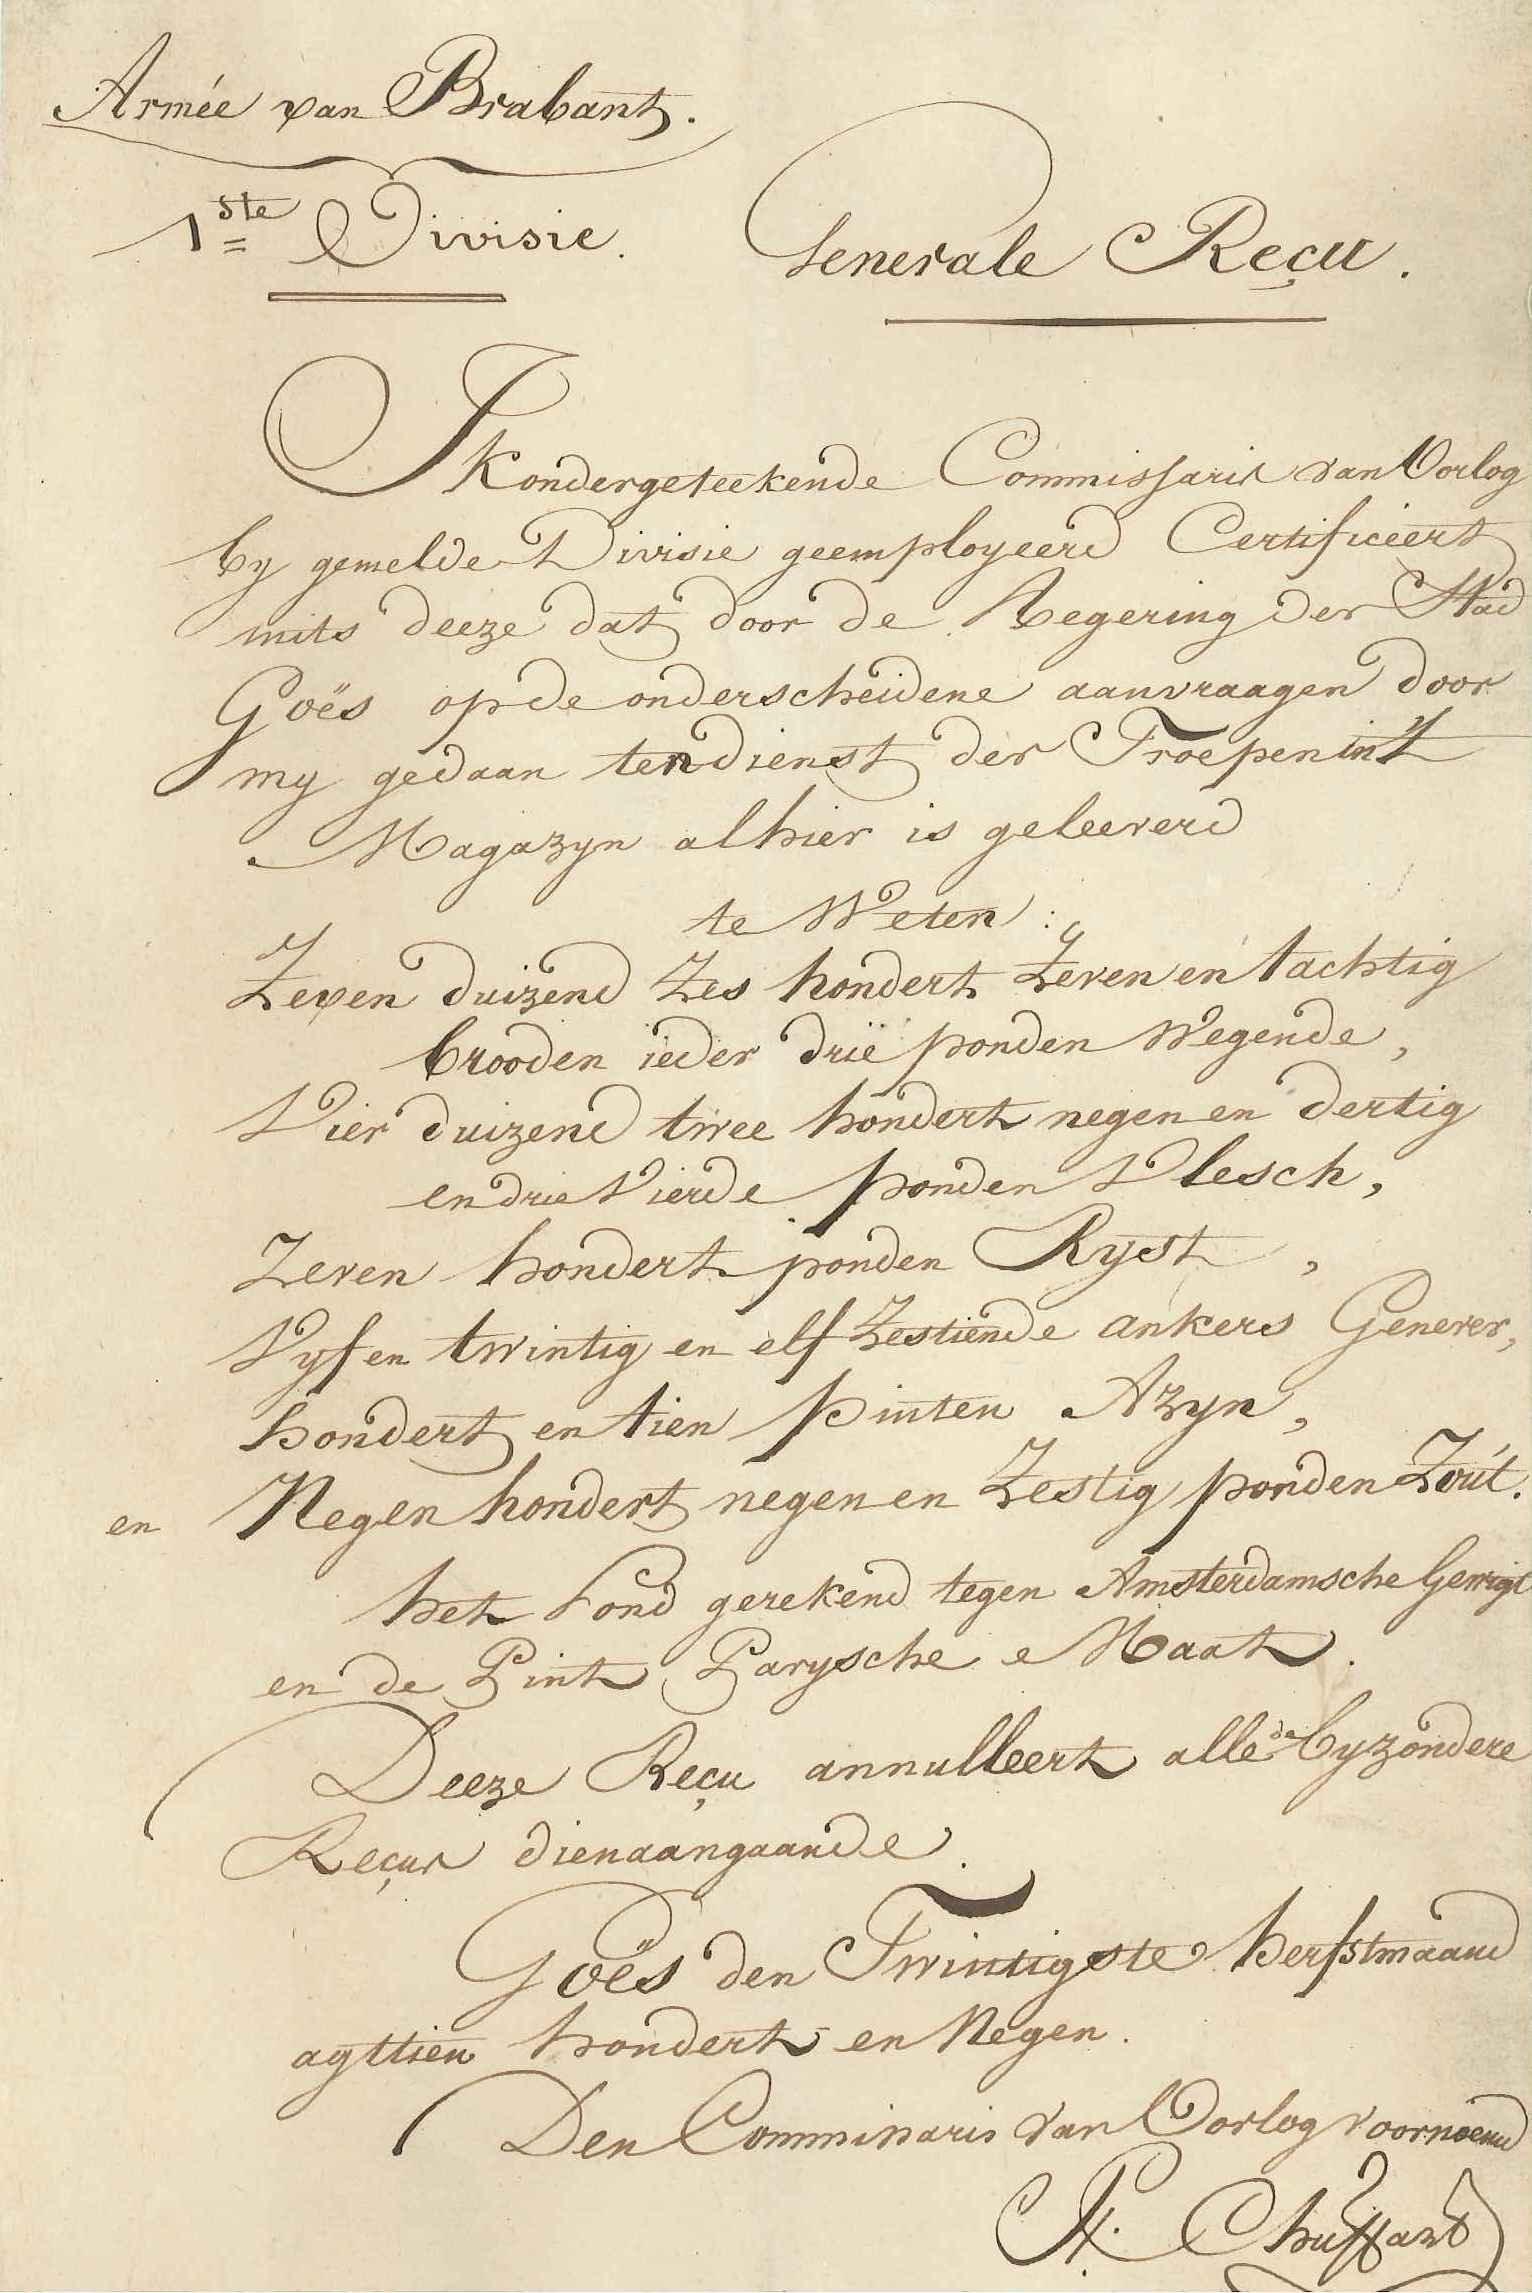 Armée van Brabant.
1ste Divisie.
Generale Reçu.
Ik ondergeteekende Commissaris van Oorlog
by gemelde Divisie geemployeerd Certificeert
mits deeze dat door de Regering der Stad
Goës op de onderscheidene aanvraagen door
my gedaan ten dienst der Troepen in't
Magazyn alhier is geleeverd
te Weten:
Zeven duizend Zes hondert Zeven en tachtig
brooden ieder drie ponden Wegende,
Vier duizend twee hondert negen en dertig
en drie Vierde ponden Vlesch,
Zeven hondert ponden Ryst,
Vyf en twintig en elf Zestiende ankers Genever,
hondert en tien pinten Azyn,
en Negen hondert negen en Zestig ponden Zout.
het Pond gerekend tegen Amsterdamsche Gewigt
en de Pint Parysche Maat.
Deeze Reçu annulleert alle de byzondere
Reçus dienaangaande.
Goës den Twintigste herfstmaand
agttien hondert en Negen.
Den Commissaris van Oorlog voornoemd